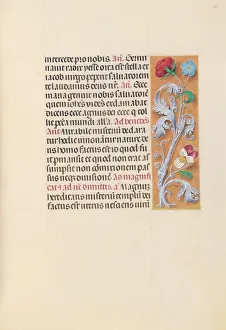 intercede pro nobis. Añ. Germi
nauit radix yesse orta est stella ex
iacob uirgo peperit saluatorem
te laudamus deus nr̃. Añ. Ecce
maria genuit nobis saluatorem
quem iohẽs videns exclamabat
dicens ecce agnus dei ecce q
tollit pctã mundi alla. Ad benedẽs
Añe. Mirabile misteriũ declaratur
hodie innouantur nature
deus homo factus est id quod fuit
permansit et quod non erat as
sumpsit non commixtionem pas
sus neqz diuisionem. Ad magnifi
cat et ad nũc dimittis. a. Magnum
hereditatis misteriũ templũ dei
factus est uterus nesciens uirũ